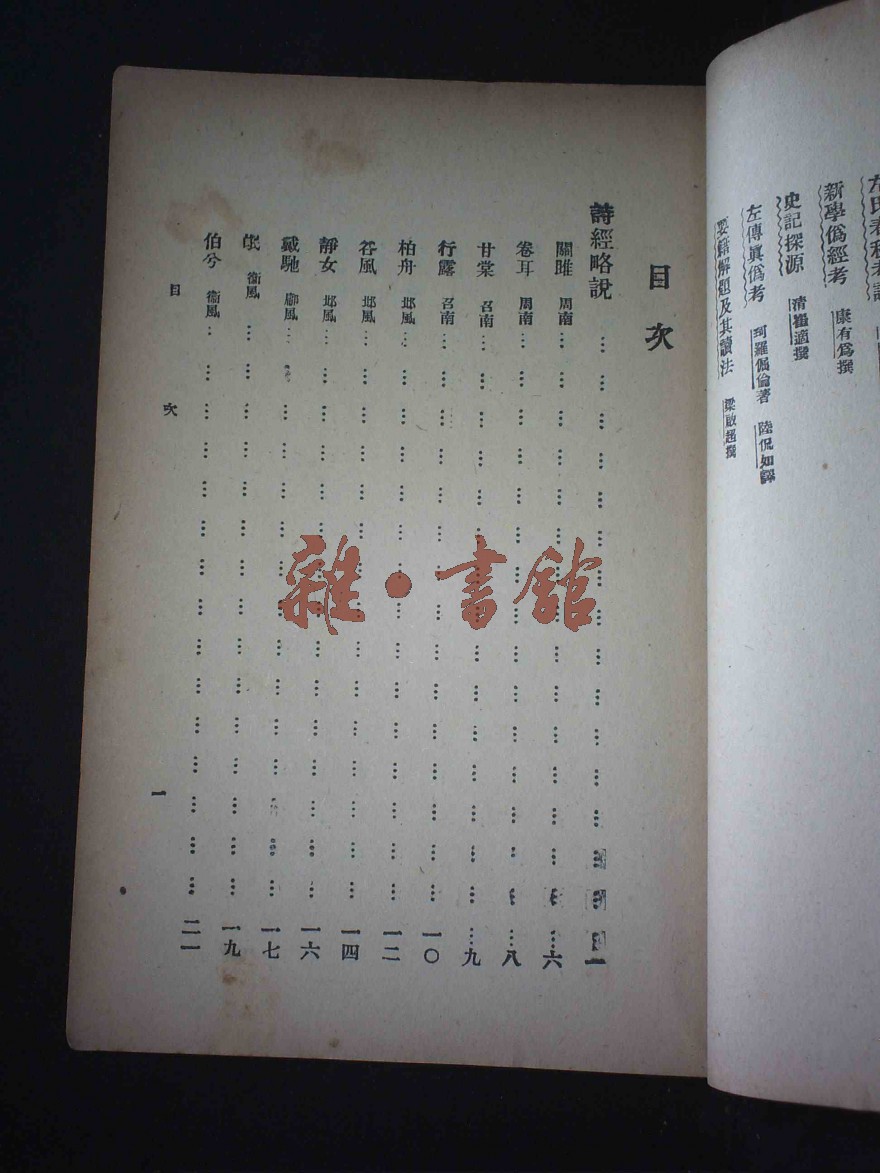 左氏春秋考證
新學僞經考 康有爲撰
史記探源 清崔適撰
左傳眞僞考 珂羅倔倫著 陸侃如譯
要籍解題及其讀法 梁啟超撰
目次
詩經略說 一
關雎 周南 六
卷耳 周南 八
甘棠 召南 九
行露 召南 一〇
柏舟 邶風 一二
谷風 邶風 一四
靜女 邶風 一六
載馳 鄘風 一七
氓 衞風 一九
伯兮 衞風 二一
目次 一
雜·書館